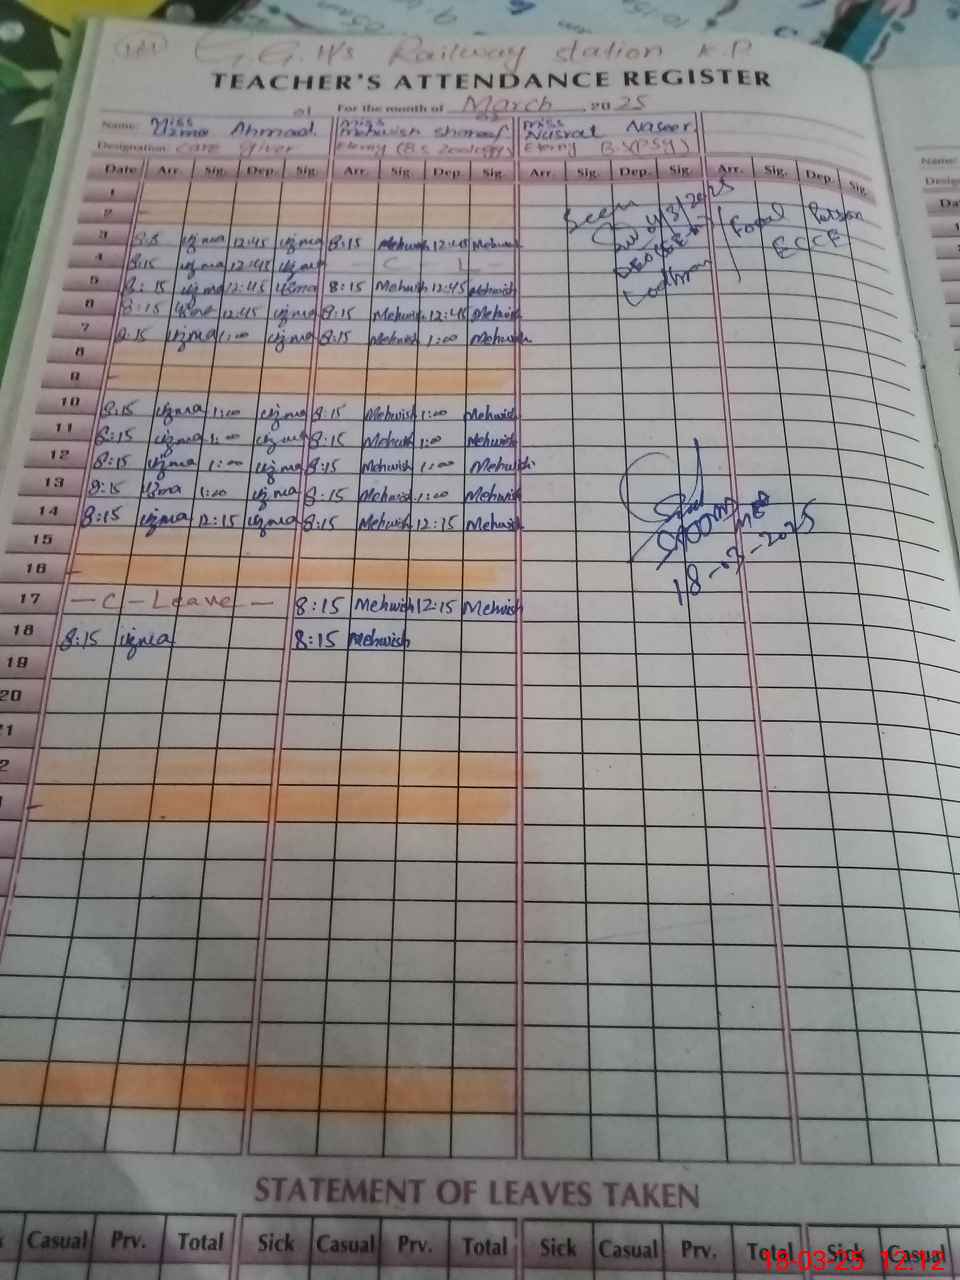 G.G.H/s Railway station K.P
TEACHER'S ATTENDANCE REGISTER
For the month of March 2025
Name: Miss Uzma Ahmad. Miss Mehwish Miss Nusrat Naseer
Designation: Care giver Eterny (B.s Zoology) Eterny B.S(PSY)
Date Arr. Sig. Dep. Sig. Arr. Sig. Dep. Sig. Arr. Sig. Dep. Sig. Arr. Sig. Dep. Sig.
1
2
Seen 4/3/2025 Focal Person
3 uzma 12:45 uzma 8:15 Mehwish 12:45 Mehwish
ECCE
4 8:15 uzma 12:45 uzma - C - L -
5 8:15 uzma 12:45 uzma 8:15 Mehwish 12:45 Mehwish
Lodhran
6 8:15 uzma 12:45 uzma 8:15 Mehwish 12:45 Mehwish
7 8:15 uzma 1:00 uzma 8:15 Mehwish 1:00 Mehwish
8
9
10 8:15 uzma 1:00 uzma 8:15 Mehwish 1:00 Mehwish
11 8:15 uzma 1:00 uzma 8:15 Mehwish 1:00 Mehwish
12 8:15 uzma 1:00 uzma 8:15 Mehwish 1:00 Mehwish
13 8:15 uzma 1:00 uzma 8:15 Mehwish 1:00 Mehwish
14 8:15 uzma 12:15 uzma 8:15 Mehwish 12:15 Mehwish
15
16
18-03-2025
17 - C - Leave - 8:15 Mehwish 12:15 Mehwish
18 8:15 uzma 8:15 Mehwish
19
20
STATEMENT OF LEAVES TAKEN
Casual Prv. Total Sick Casual Prv. Total Sick Casual Prv. Total Sick Casual
18-03-25 12:12
Name: